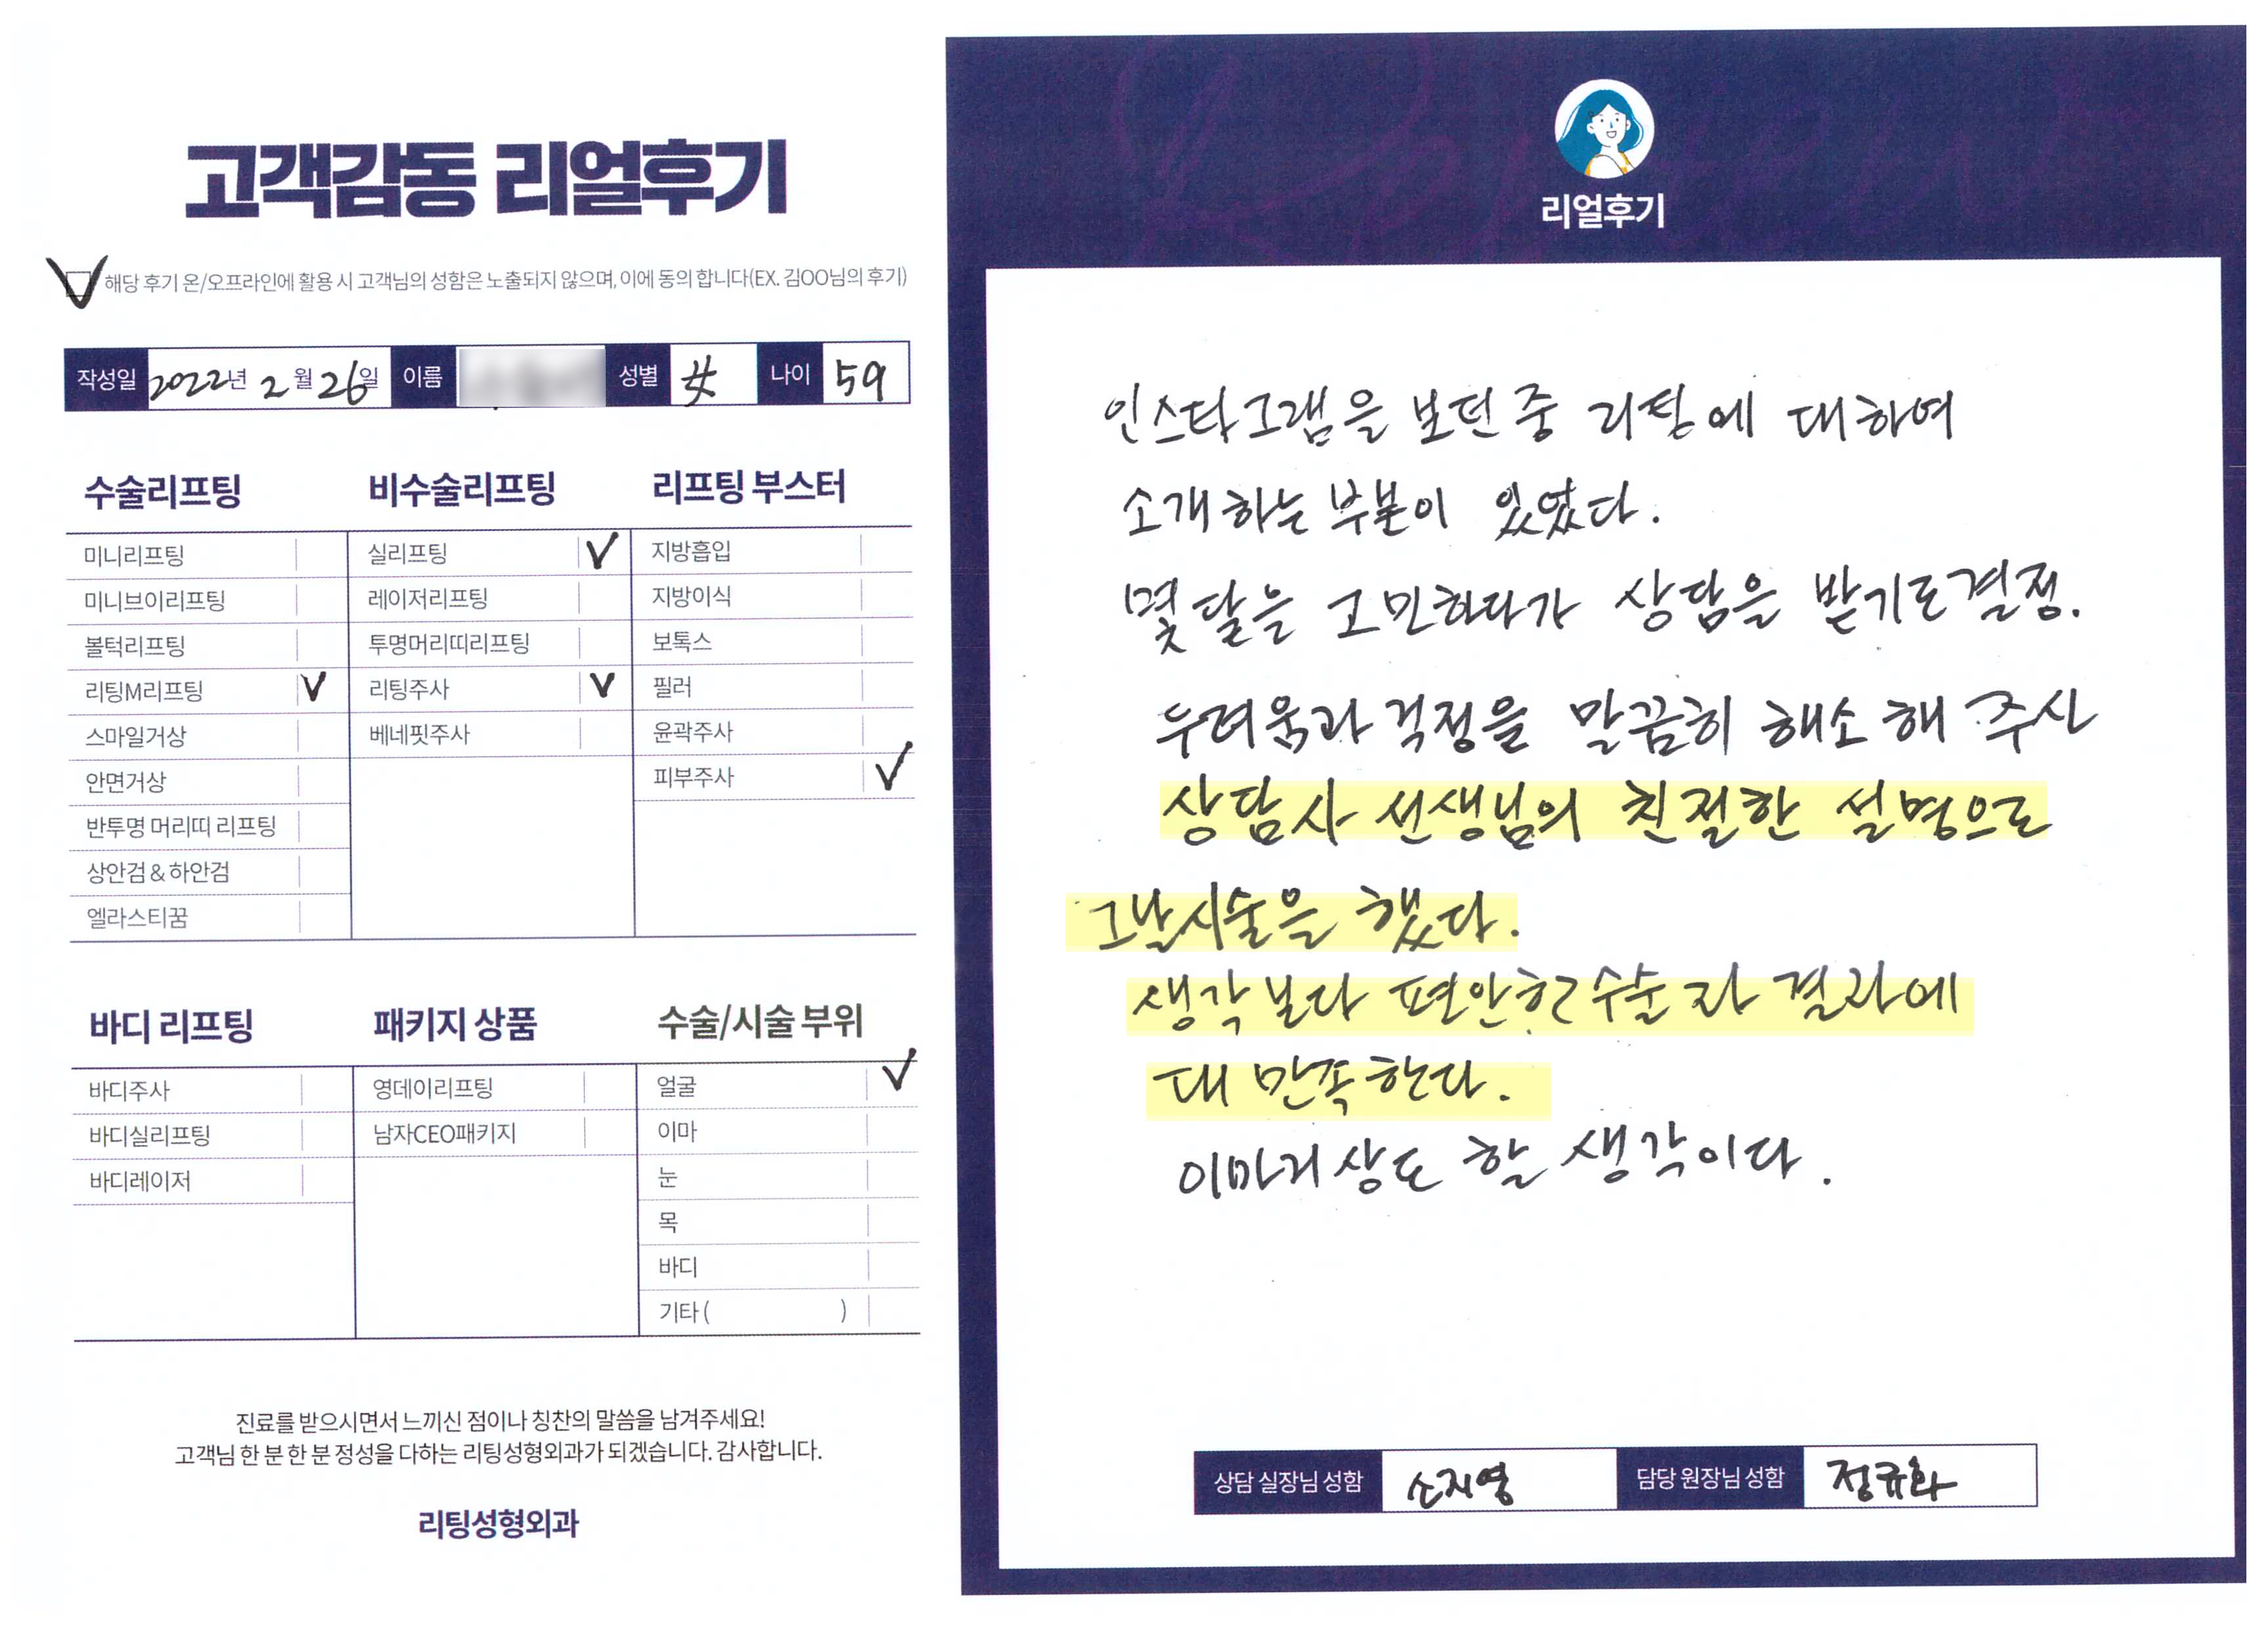 고객감동 리얼후기
해당 후기 온/오프라인에 활용 시 고객님의 성함은 노출되지 않으며, 이에 동의 합니다(EX. 김OO님의 후기)
작성일 2022년 2월 26일 이름 성별 女 나이 59
수술리프팅
미니리프팅
미니브이리프팅
볼턱리프팅
리팅M리프팅 V
스마일거상
안면거상
반투명 머리띠 리프팅
상안검 & 하안검
엘라스티꿈
비수술리프팅
실리프팅 V
레이저리프팅
투명머리띠리프팅
리팅주사 V
베네핏주사
리프팅 부스터
지방흡입
지방이식
보톡스
필러
윤곽주사
피부주사 V
바디 리프팅
바디주사
바디실리프팅
바디레이저
패키지 상품
영데이리프팅
남자CEO패키지
수술/시술 부위
얼굴 V
이마
눈
목
바디
기타 ( )
진료를 받으시면서 느끼신 점이나 칭찬의 말씀을 남겨주세요!
고객님 한 분 한 분 정성을 다하는 리팅성형외과가 되겠습니다. 감사합니다.
리팅성형외과
리얼후기
인스타그램을 보던 중 리팅에 대하여
소개하는 부분이 있었다.
몇 달을 고민하다가 상담을 받기로 결정.
두려움과 걱정을 말끔히 해소해 주신
상담사 선생님의 친절한 설명으로
그날 시술을 했다.
생각보다 편안한 수술과 결과에
대 만족한다.
이마거상도 할 생각이다.
상담 실장님 성함 소지영 담당 원장님 성함 정규화